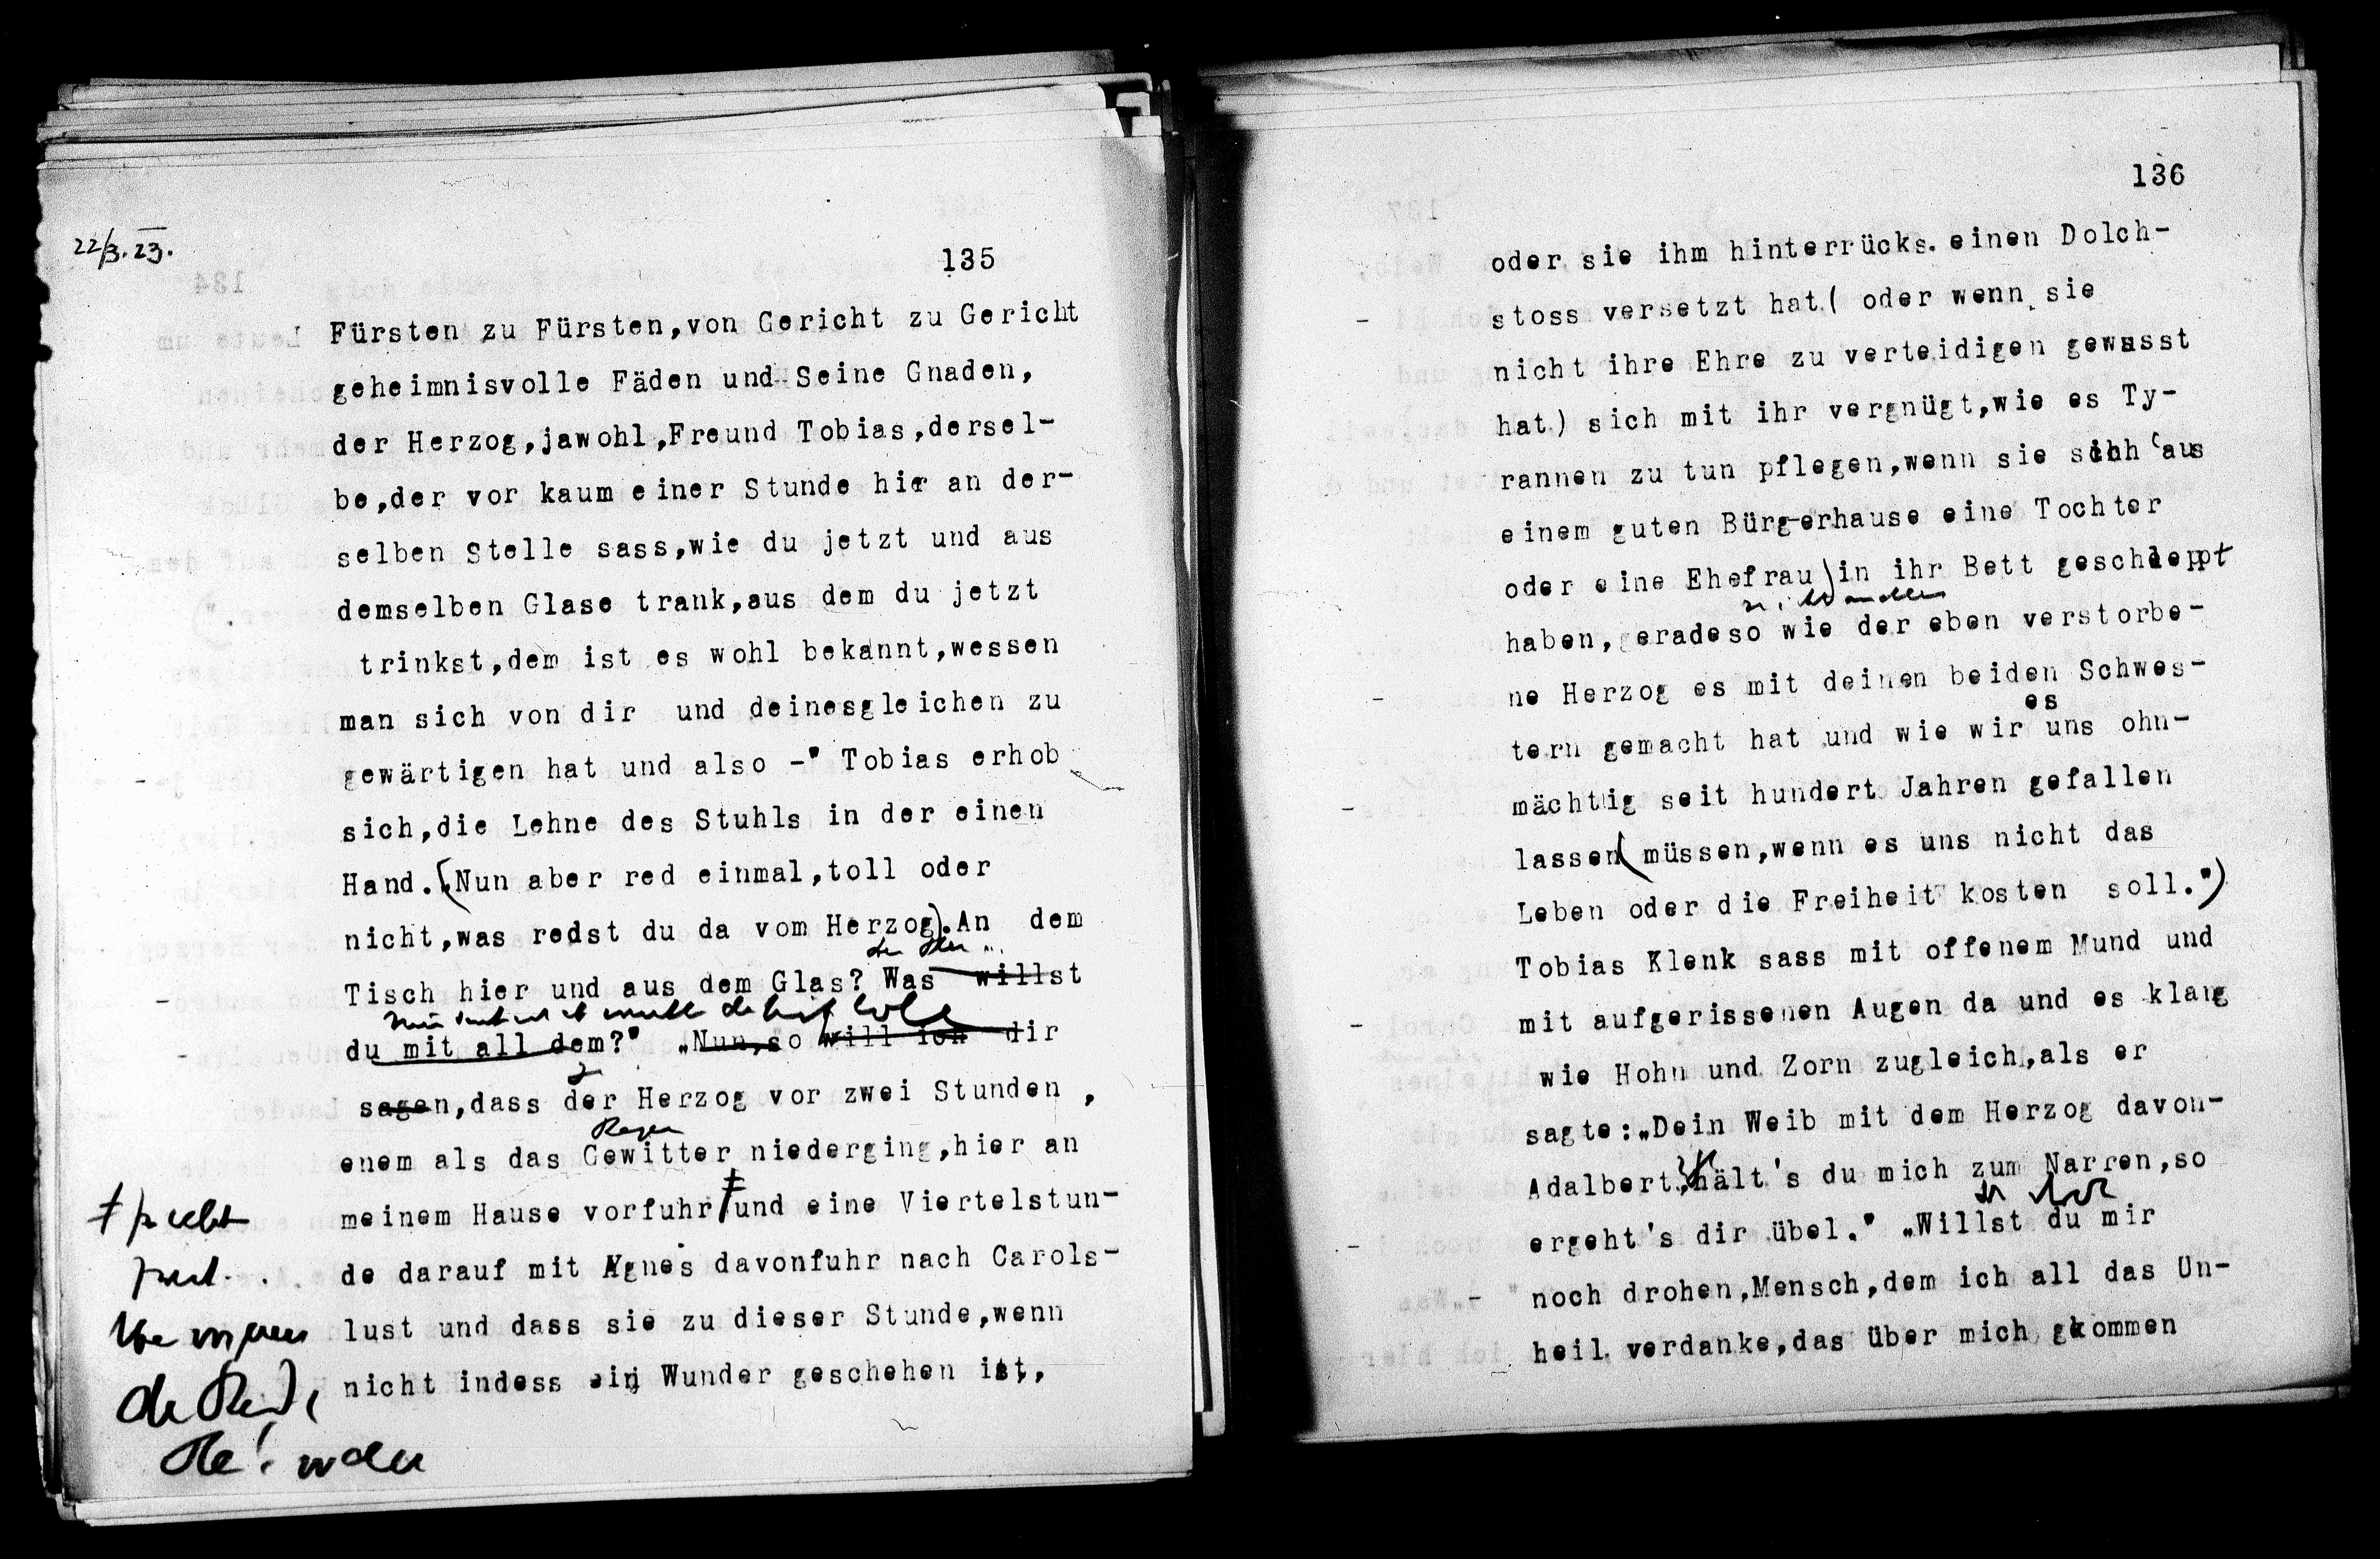 22/3.23.
135
Fürsten zu Fürsten,von Gericht zu Gericht
geheimnisvolle Fäden und Seine Gnaden,
der Herzog,jawohl,Freund Tobias,dersel-
be,der vor kaum einer Stunde hier an der-
selben Stelle sass,wie du jetzt und aus
demselben Glase trank,aus dem du jetzt
trinkst,dem ist es wohl bekannt,wessen
man sich von dir und deinesgleichen zu
gewärtigen hat und also -" Tobias erhob
sich,die Lehne des Stuhls in der einen
Hand.(„Nun aber red einmal,toll oder
nicht,was redst du da vom Herzog).An dem
Tisch hier und aus dem Glas? Was willst
du mit all dem?" „Nun,so will ich dir
sagen,dass der Herzog vor zwei Stunden ,
Regen
enem als das Gewitter niederging,hier an
meinem Hause vorfuhr und eine Viertelstun-
de darauf mit Agnes davonfuhr nach Carols-
lust und dass sie zu dieser Stunde,wenn
nicht indess ein Wunder geschehen ist,
136
oder sie ihm hinterrücks einen Dolch-
stoss versetzt hat( oder wenn sie
nicht ihre Ehre zu verteidigen gewusst
hat) sich mit ihr vergnügt,wie es Ty-
rannen zu tun pflegen,wenn sie sich (aus
einem guten Bürgerhause eine Tochter
oder eine Ehefrau) in ihr Bett geschleppt
haben,geradeso wie der eben verstorbe-
ne Herzog es mit deinen beiden Schwes-
es
tern gemacht hat und wie wir uns ohn-
mächtig seit hundert Jahren gefallen
lassen( müssen,wenn es uns nicht das
Leben oder die Freiheit kosten soll.")
Tobias Klenk sass mit offenem Mund und
mit aufgerissenen Augen da und es klang
wie Hohn und Zorn zugleich,als er
sagte:„Dein Weib mit dem Herzog davon-
Adalbert,hält's du mich zum Narren,so
ergeht's dir übel." „Willst du mir
noch drohen,Mensch,dem ich all das Un-
heil verdanke,das über mich gkommen